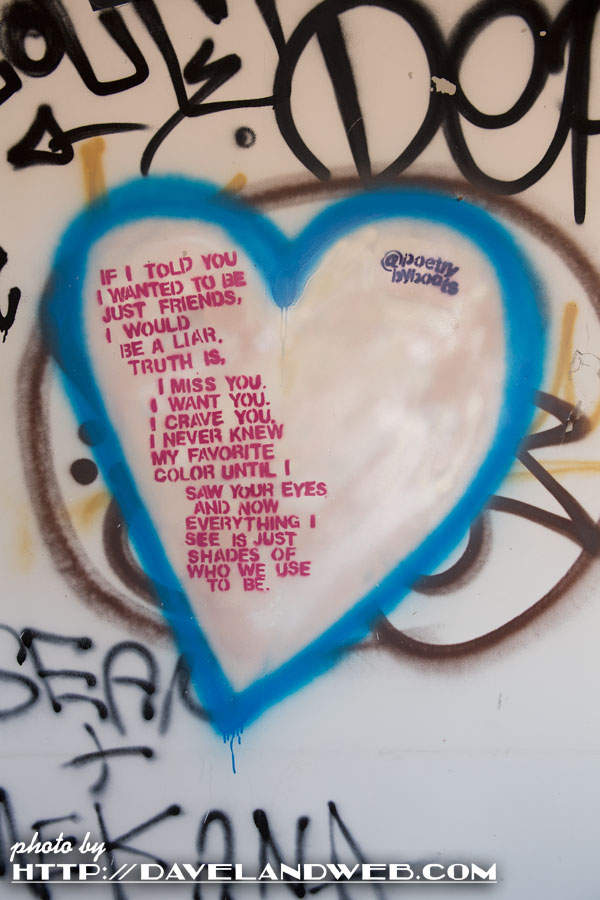 IF I TOLD YOU
I WANTED TO BE
JUST FRIENDS,
I WOULD
BE A LIAR.
TRUTH IS,
I MISS YOU.
I WANT YOU.
I CRAVE YOU.
I NEVER KNEW
MY FAVORITE
COLOR UNTIL I
SAW YOUR EYES
AND NOW
EVERYTHING I
SEE IS JUST
SHADES OF
WHO WE USE
TO BE.
@poetry
byboots
SEAN
+
photo by
HTTP://DAVELANDWEB.COM